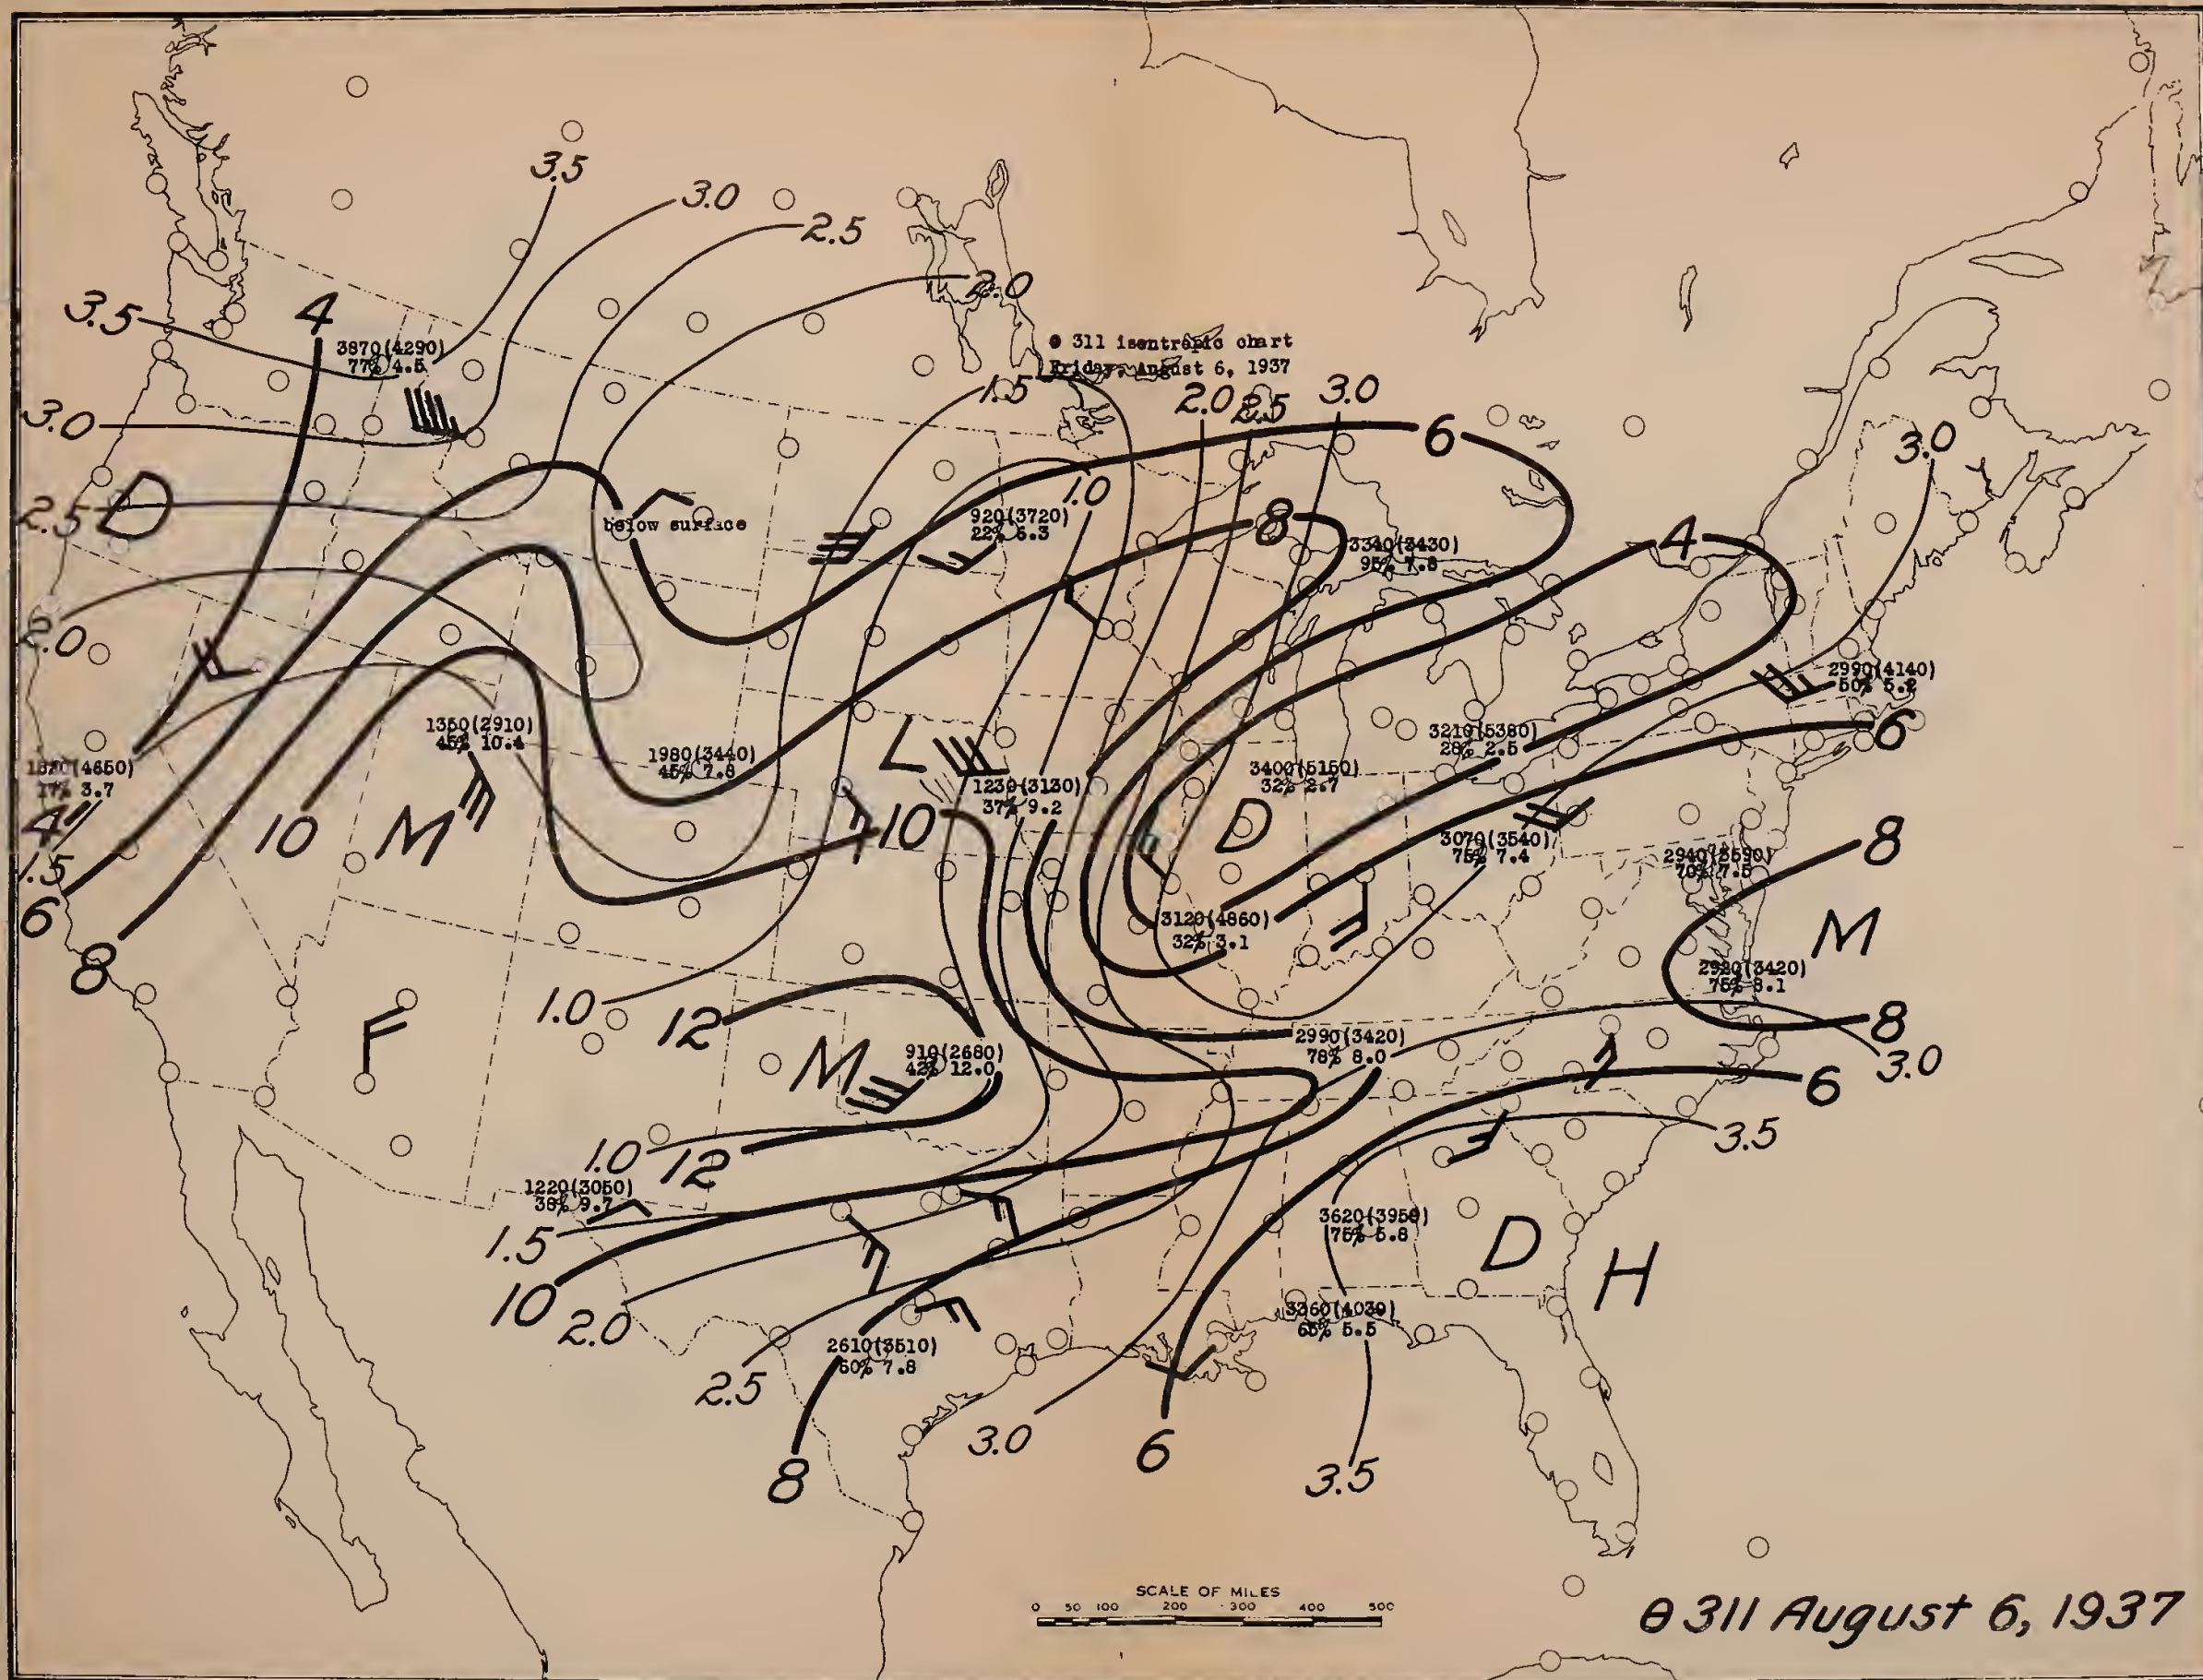 3.5
3.0
2.5
2.0
3.5
4
3870(4290)
77% 4.5
θ 311 isentropic chart
Friday, August 6, 1937
1.5
2.0
2.5
3.0
3.0
6
3.0
D
2.5
below surface
1.0
920(3720)
22% 6.3
8
3340(3430)
95% 7.8
4
2.0
2990(4140)
50% 5.2
1350(2910)
45% 10.4
1980(3440)
45% 7.8
L
3210(5380)
28% 2.5
6
(4650)
17% 3.7
1230(3130)
37% 9.2
3400(5150)
32% 2.7
4
10
M
10
D
3070(3540)
75% 7.4
8
2940(3590)
70% 7.5
1.5
6
3120(4860)
32% 3.1
M
8
2920(3420)
75% 8.1
1.0
12
8
M
910(2680)
42% 12.0
2990(3420)
78% 8.0
3.0
6
1.0
12
3.5
1220(3050)
38% 9.7
1.5
3620(3950)
75% 5.8
D
H
10
2.0
3360(4030)
65% 5.5
2610(3510)
60% 7.8
2.5
3.0
6
8
3.5
SCALE OF MILES
0 50 100 200 300 400 500
θ 311 August 6, 1937